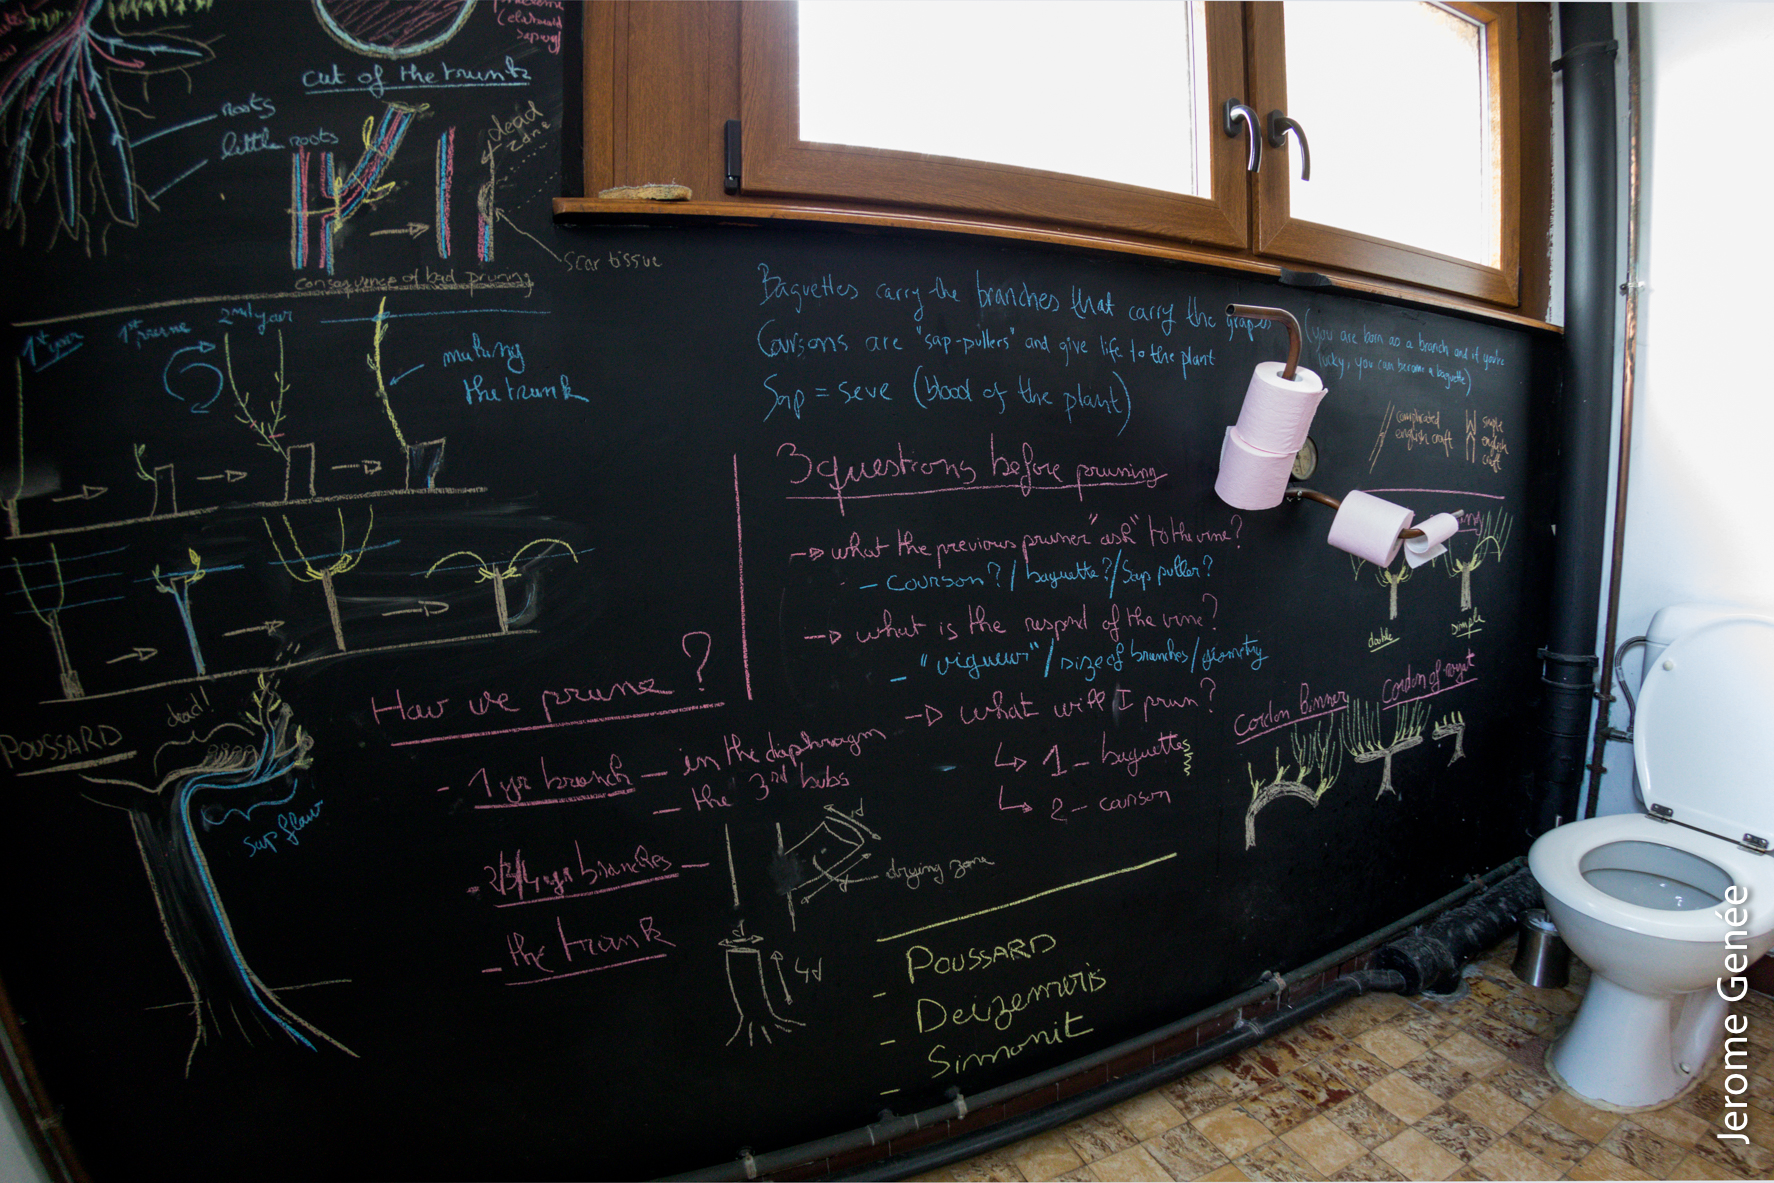 cut of the trunk
roots
little roots
dead
zone
scar tissue
consequence of bad pruning
1st year
1st prune
2nd year
making
the trunk
POUSSARD
dead!
Sap flow
Baguettes carry the branches that carry the grapes
(you are born as a branch and if you're
lucky, you can become a baguette)
Coursons are "sap-pullers" and give life to the plant
Sap = seve (blood of the plant)
complicated
english craft
simple
english
craft
3 questions before pruning
what the previous pruner "ask" to the vine?
- courson? / baguette? / Sap puller?
what is the respnd of the vine?
- "vigueur" / size of branches / geometry
what will I prun?
1 - baguettes
2 - courson
double
simple
Cordon
Cordon of royat
How we prune?
- 1 yr branch - in the diaphragm
- the 3rd bubs
- 2/3/4 yrs branches -
- the trunk
d
drying zone
d
4d
- POUSSARD
- Deizemeris
- Simonit
Jerome Genée